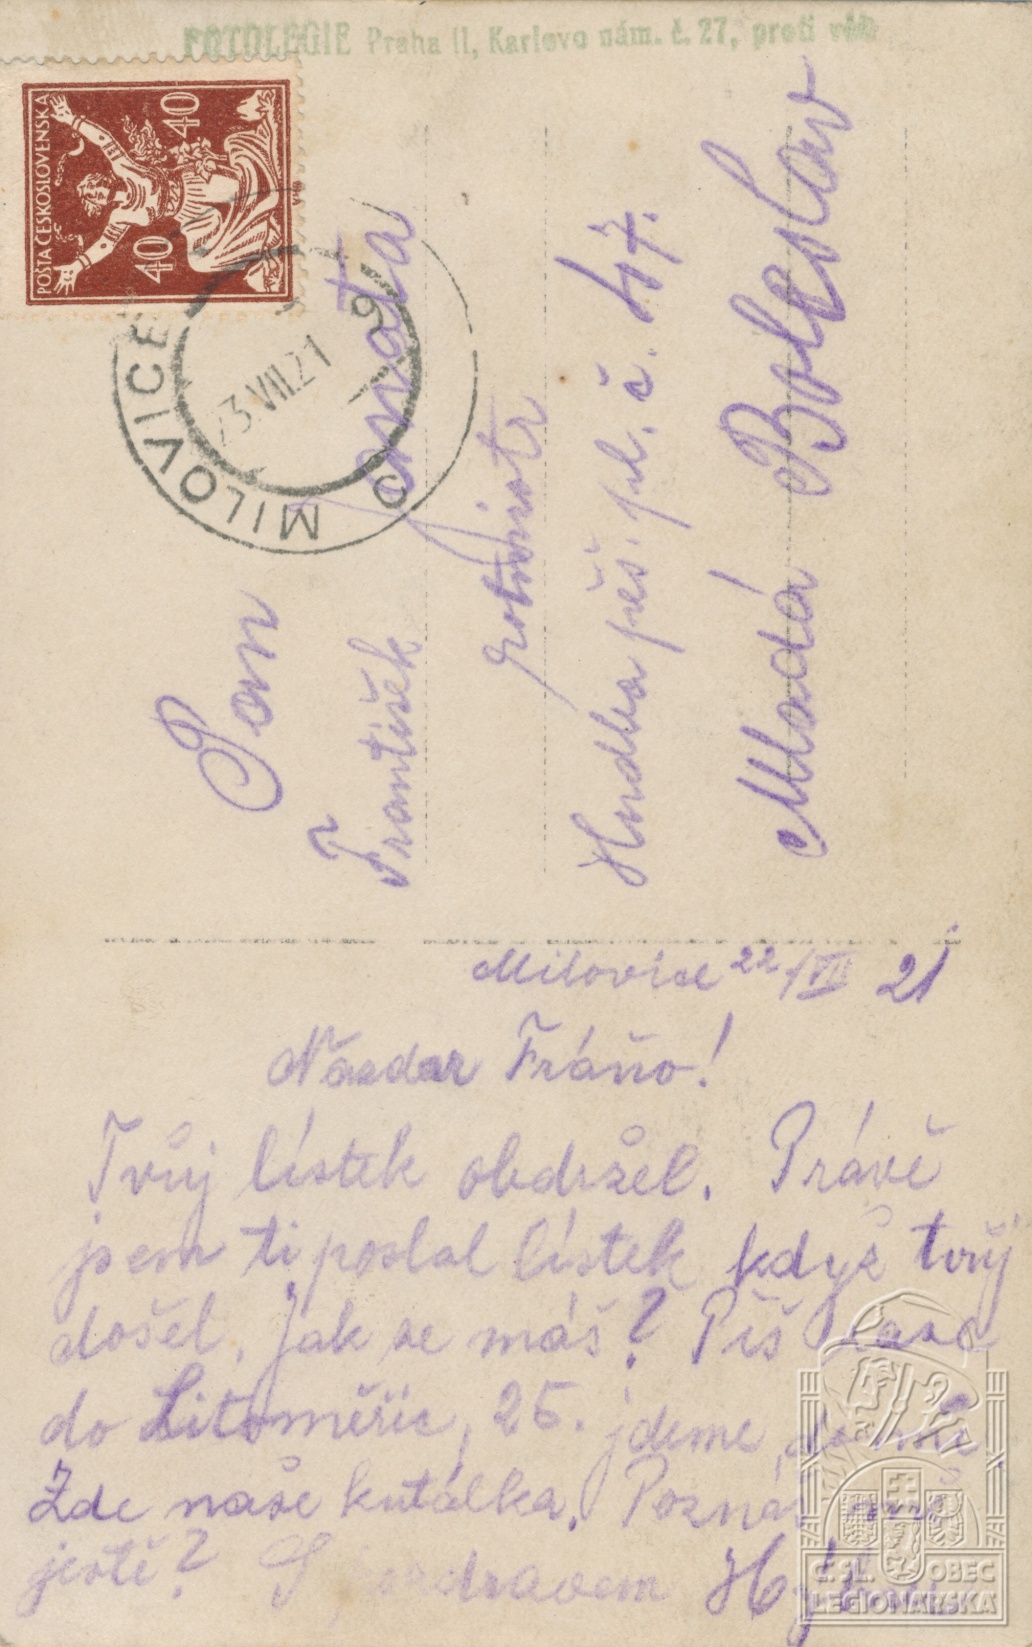 FOTOLEGIE Praha II, Karlovo nám. č. 27, proti
POŠTA ČESKOSLOVENSKÁ
40 40
MILOVICE
23.VII.21
Pan
František
rotmistr
Hudba pěš. pl. č. 47.
Mladá Boleslav
Milovice 22/VII 21
Nazdar Fráňo!
Tvůj lístek obdržel. Právě
jsem ti poslal lístek když tvůj
došel. Jak se máš? Piš zase
do Litoměřic, 25. jdeme
Zde naše kutálka. Poznáš
jestě? S pozdravem
Č.SL. OBEC
LEGIONÁŘSKÁ